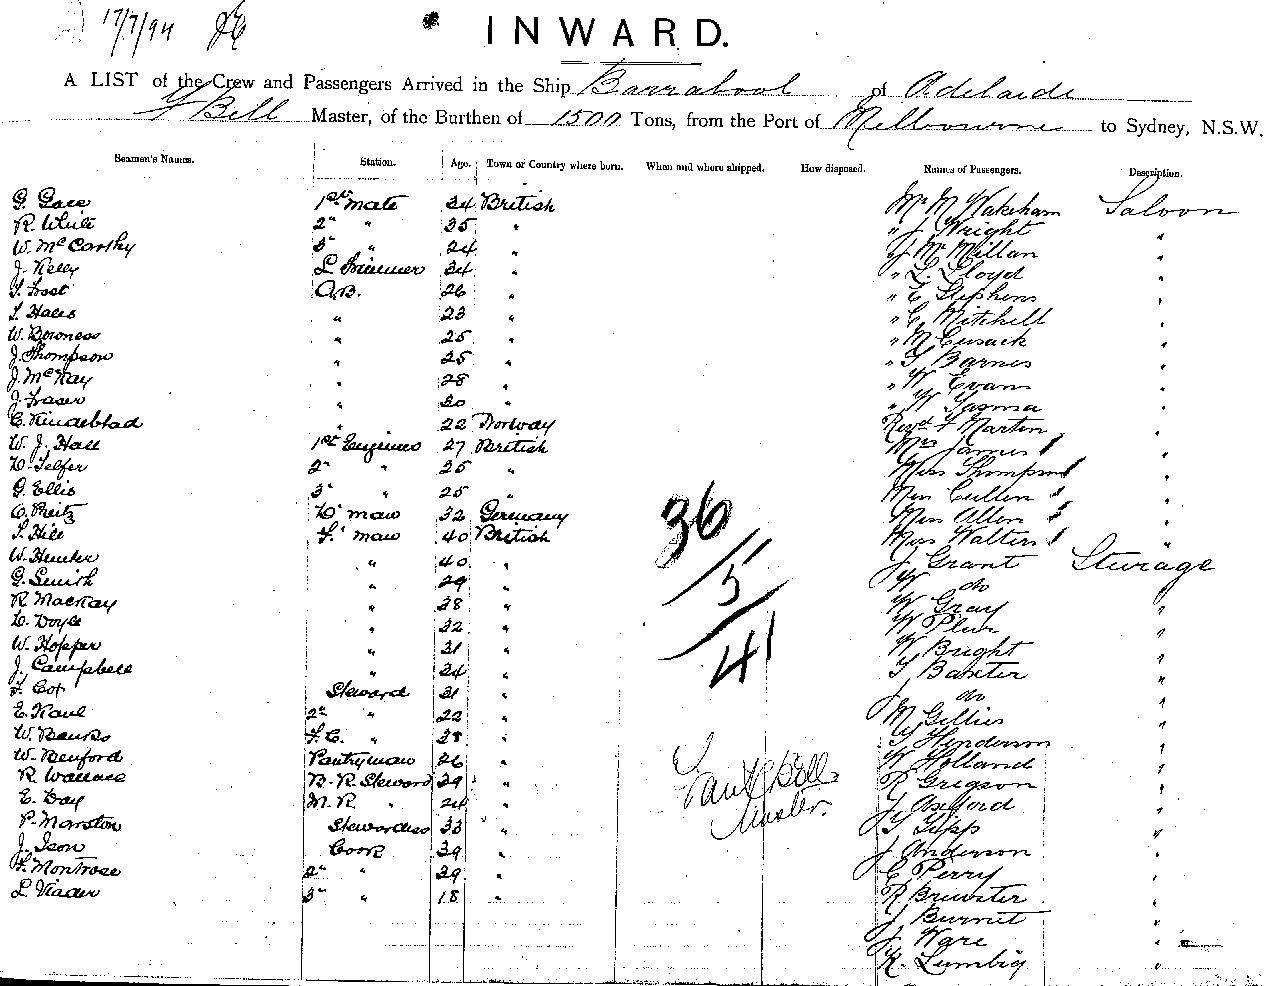 17/7/94
INWARD.
A LIST of the Crew and Passengers Arrived in the Ship Barrabool of Adelaide
Bell Master, of the Burthen of 1500 Tons, from the Port of Melbourne to Sydney, N.S.W.
Seamen's Names. Station. Age. Town or Country where born. When and where shipped. How disposed. Names of Passengers. Description.
1st Mate 34 British Mr M Wakeham Saloon
R. White 2" " 35 " " J Wright "
W. McCarthy 3" " 24 " J McMillan "
J. Kelly 34 " " L. Lloyd "
A.B. 26 " " E Stephens "
" 23 " " C Mitchell "
W. Bowness " 25 " " M Cusack "
J. Thompson " 25 " " T Barnes "
J. McKay " 28 " " W Evans "
J. Fraser " 30 " " W "
" 22 Norway Revd F Martin "
W. J. Hall 1st Engineer 27 British Mrs James 1 "
D. Telfer 2" " 25 " Miss Thompson 1 "
G. Ellis 3" " 25 " Miss Cullen 1 "
D'man 32 Germany Miss Allen 1 "
F'man 40 British Miss Walters 1 "
W. Hunter " 40 " J Grant Steerage
G. Smith " 29 " W do "
R. Mackay " 28 " W Gray "
D. Doyle " 32 " W "
W. Hopper " 31 " W Bright "
J. Campbell " 34 " T Baxter "
F. Cox Steward 31 " J do "
2" " 22 " M Gillies "
W. Banks F.C. " 28 " T Henderson "
W. Benford Pantryman 26 " W Holland "
R. Wallace B.R. Steward 39 " R Gregson "
E. Day M.R. " 24 " J Axford "
P. Marston Stewardess 33 " T Gipp "
J. Ison Cook 39 " J Anderson "
F. Montrose 2" " 29 " C Perry "
3" " 18 " R Brewster "
J Burnet "
J Ware "
K. "
36
5
41
Bell
Master.